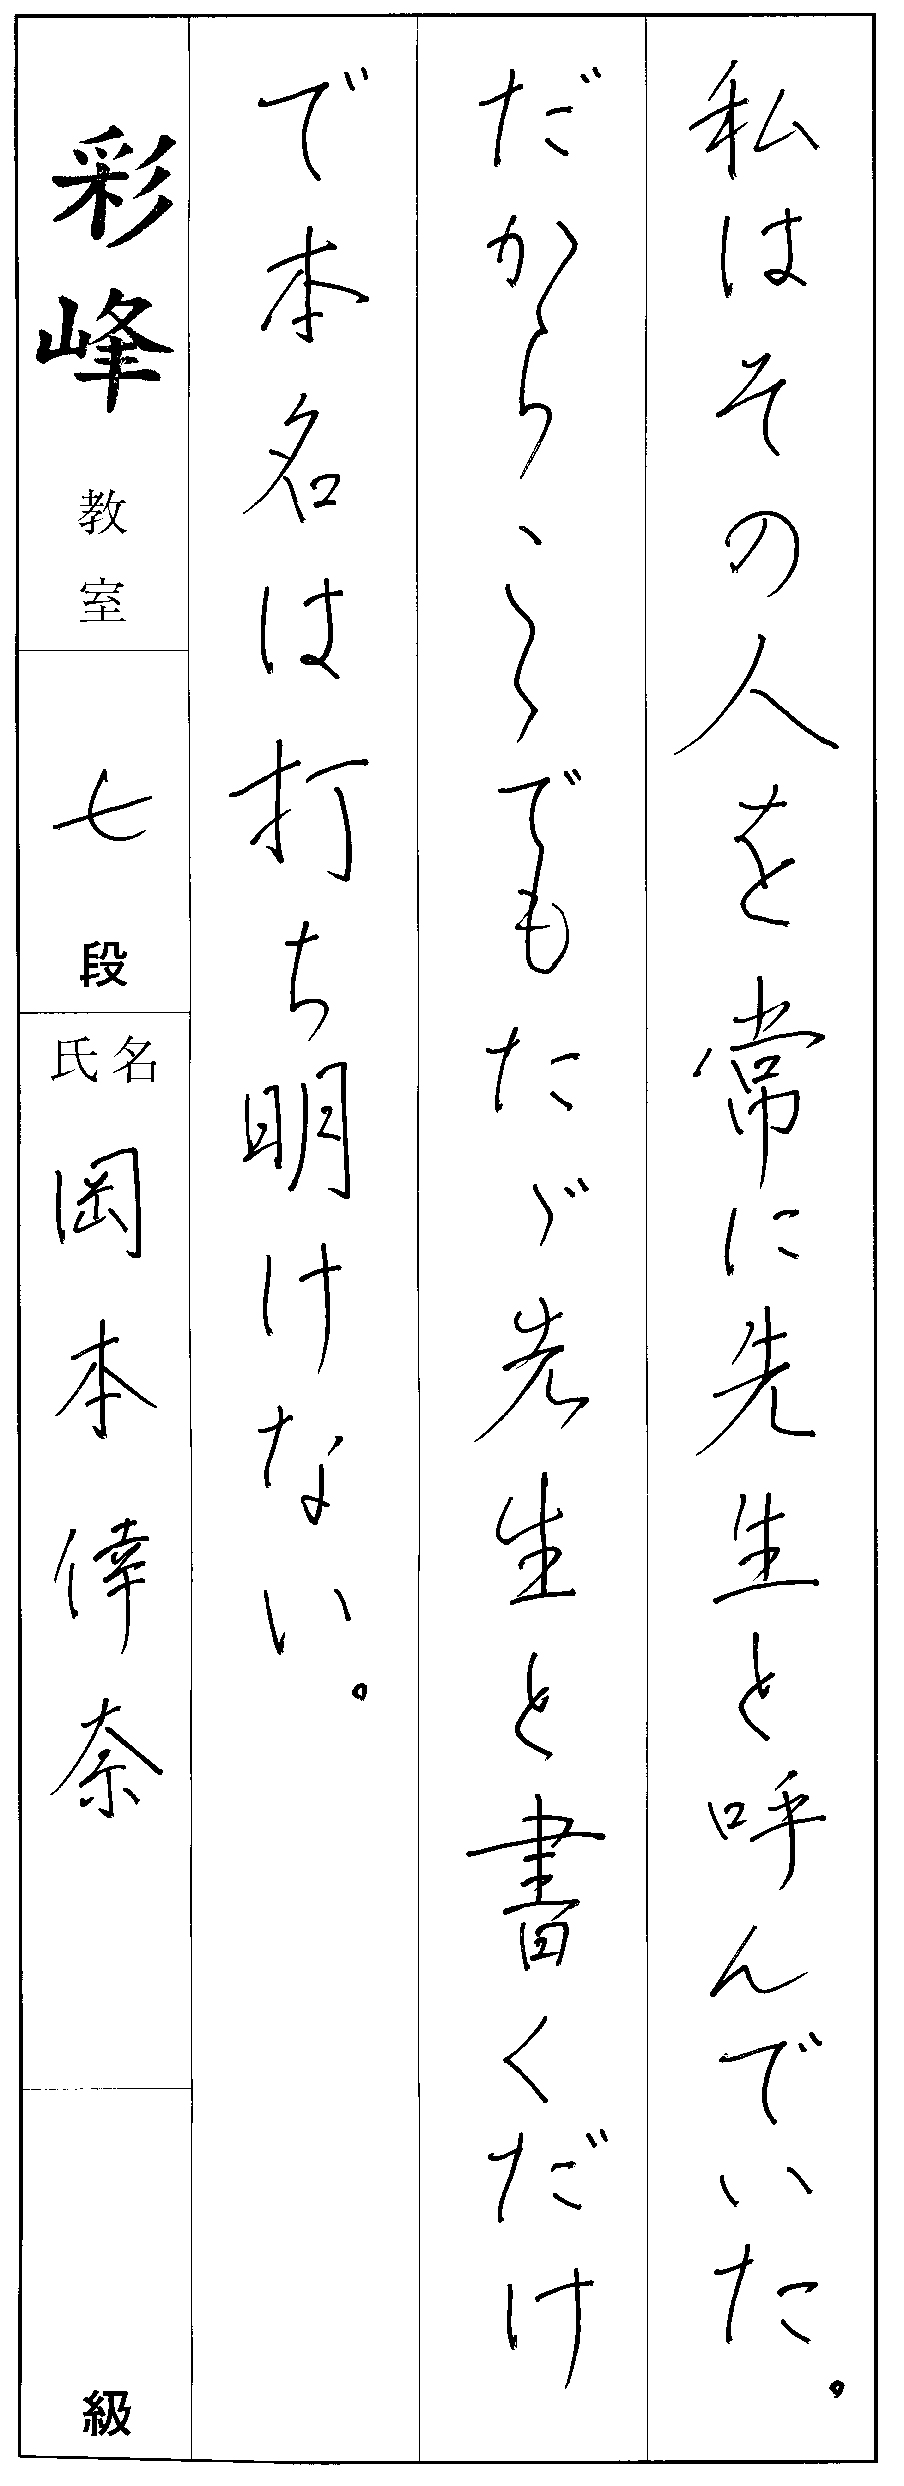 私はその人を常に先生と呼んでいた。
だから、こゝでもたゞ先生と書くだけ
で本名は打ち明けない。
彩峰教室
七段
氏名 岡本倖奈
級